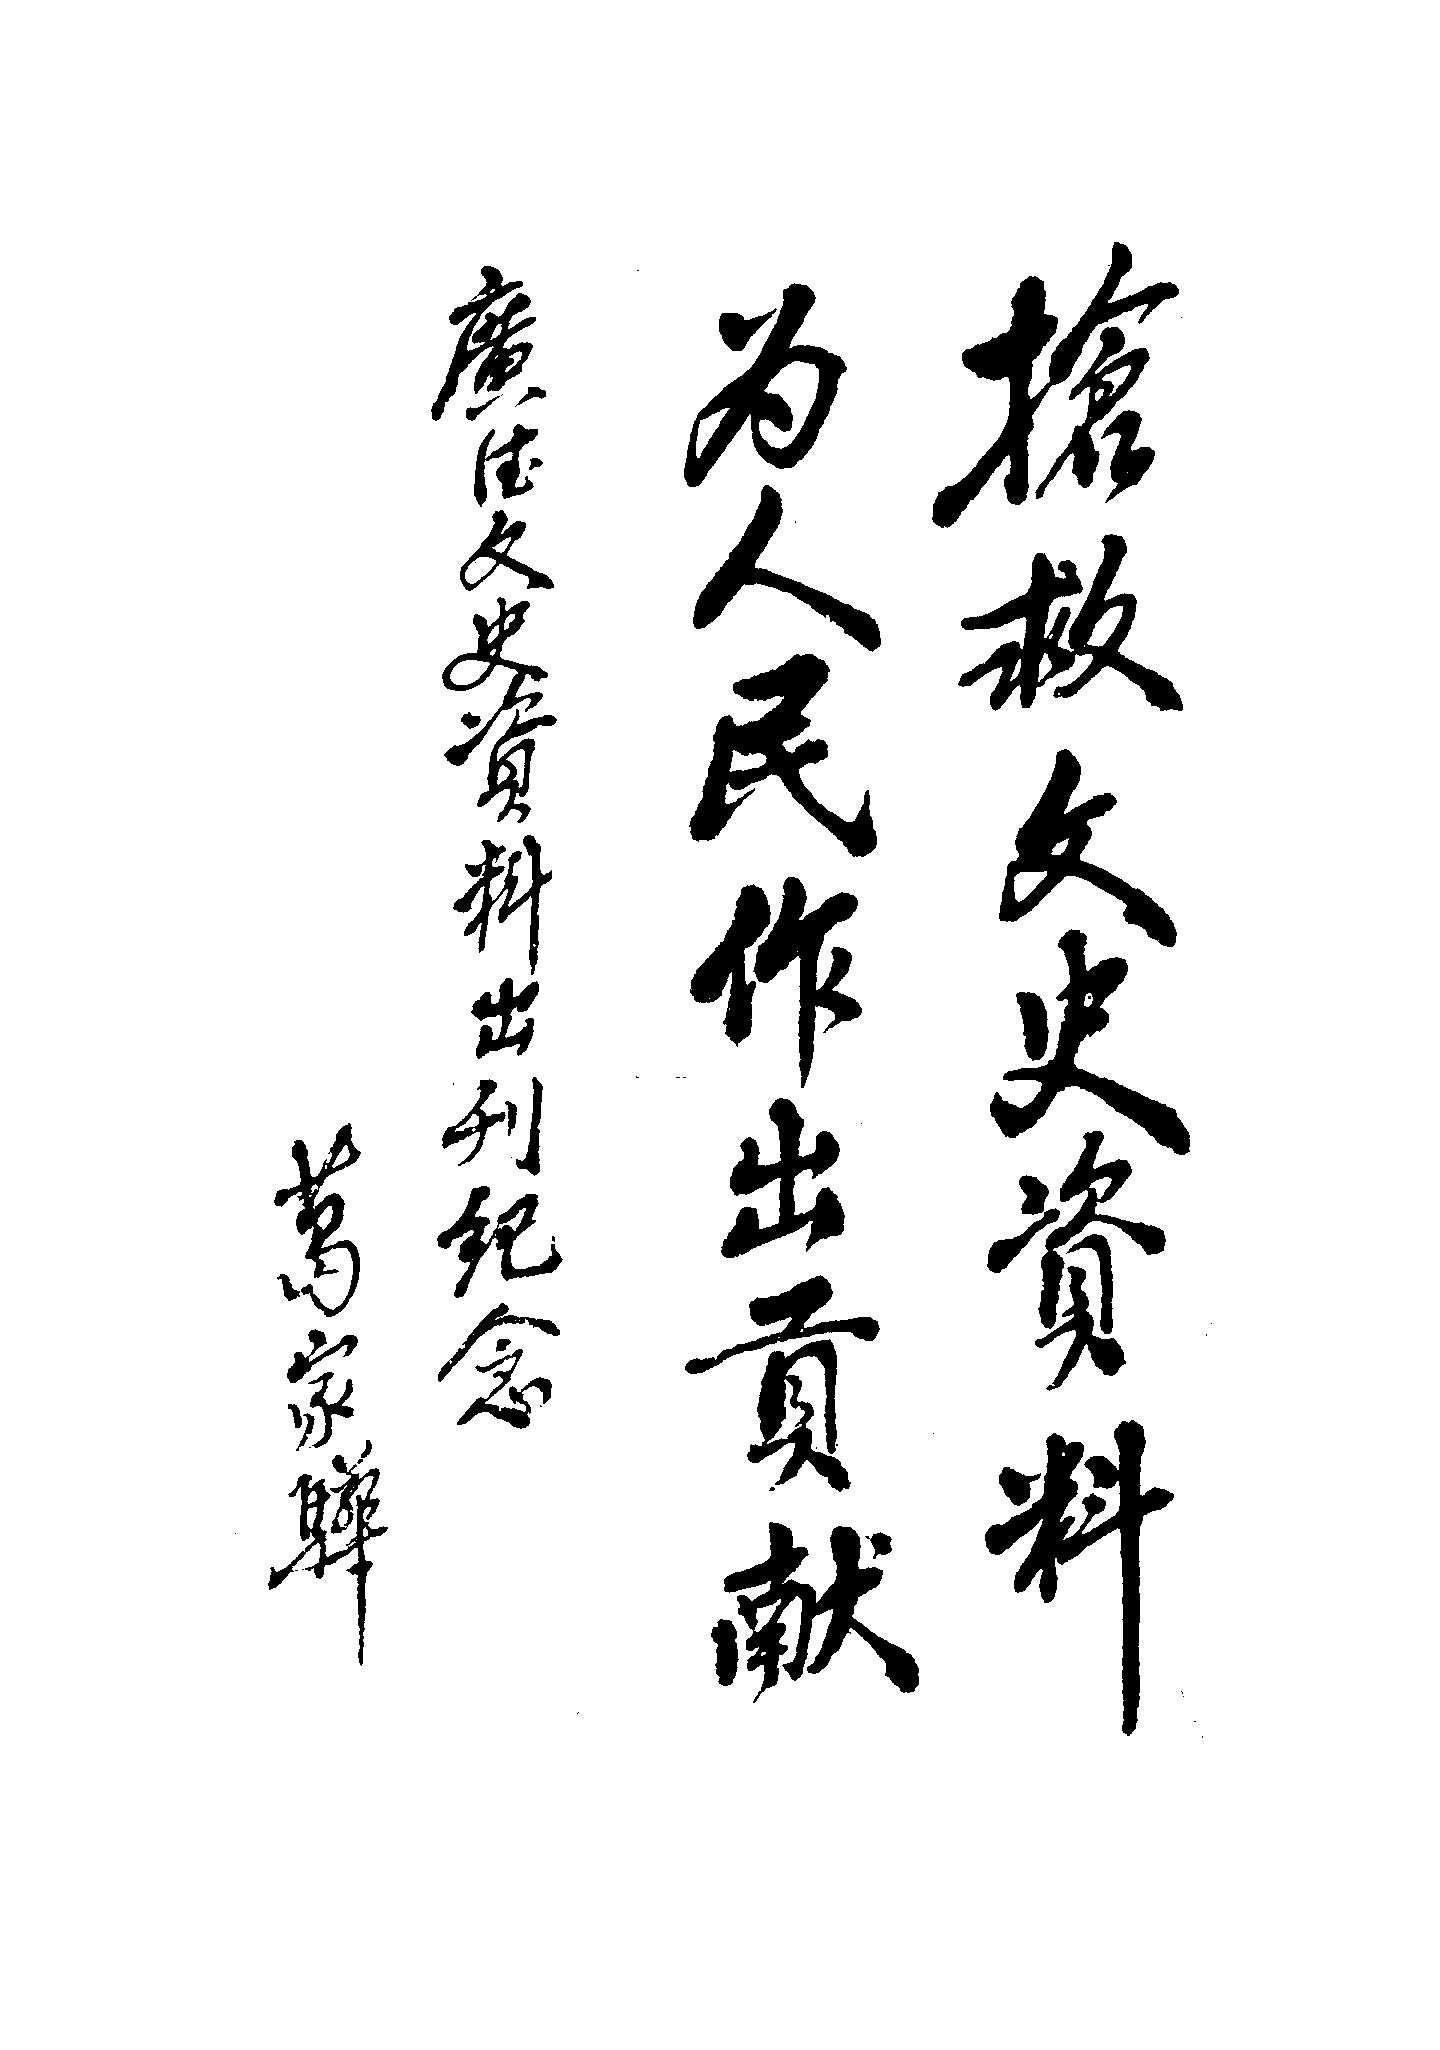 搶救文史資料
为人民作出貢献
廣德文史資料出刊纪念
葛家驊